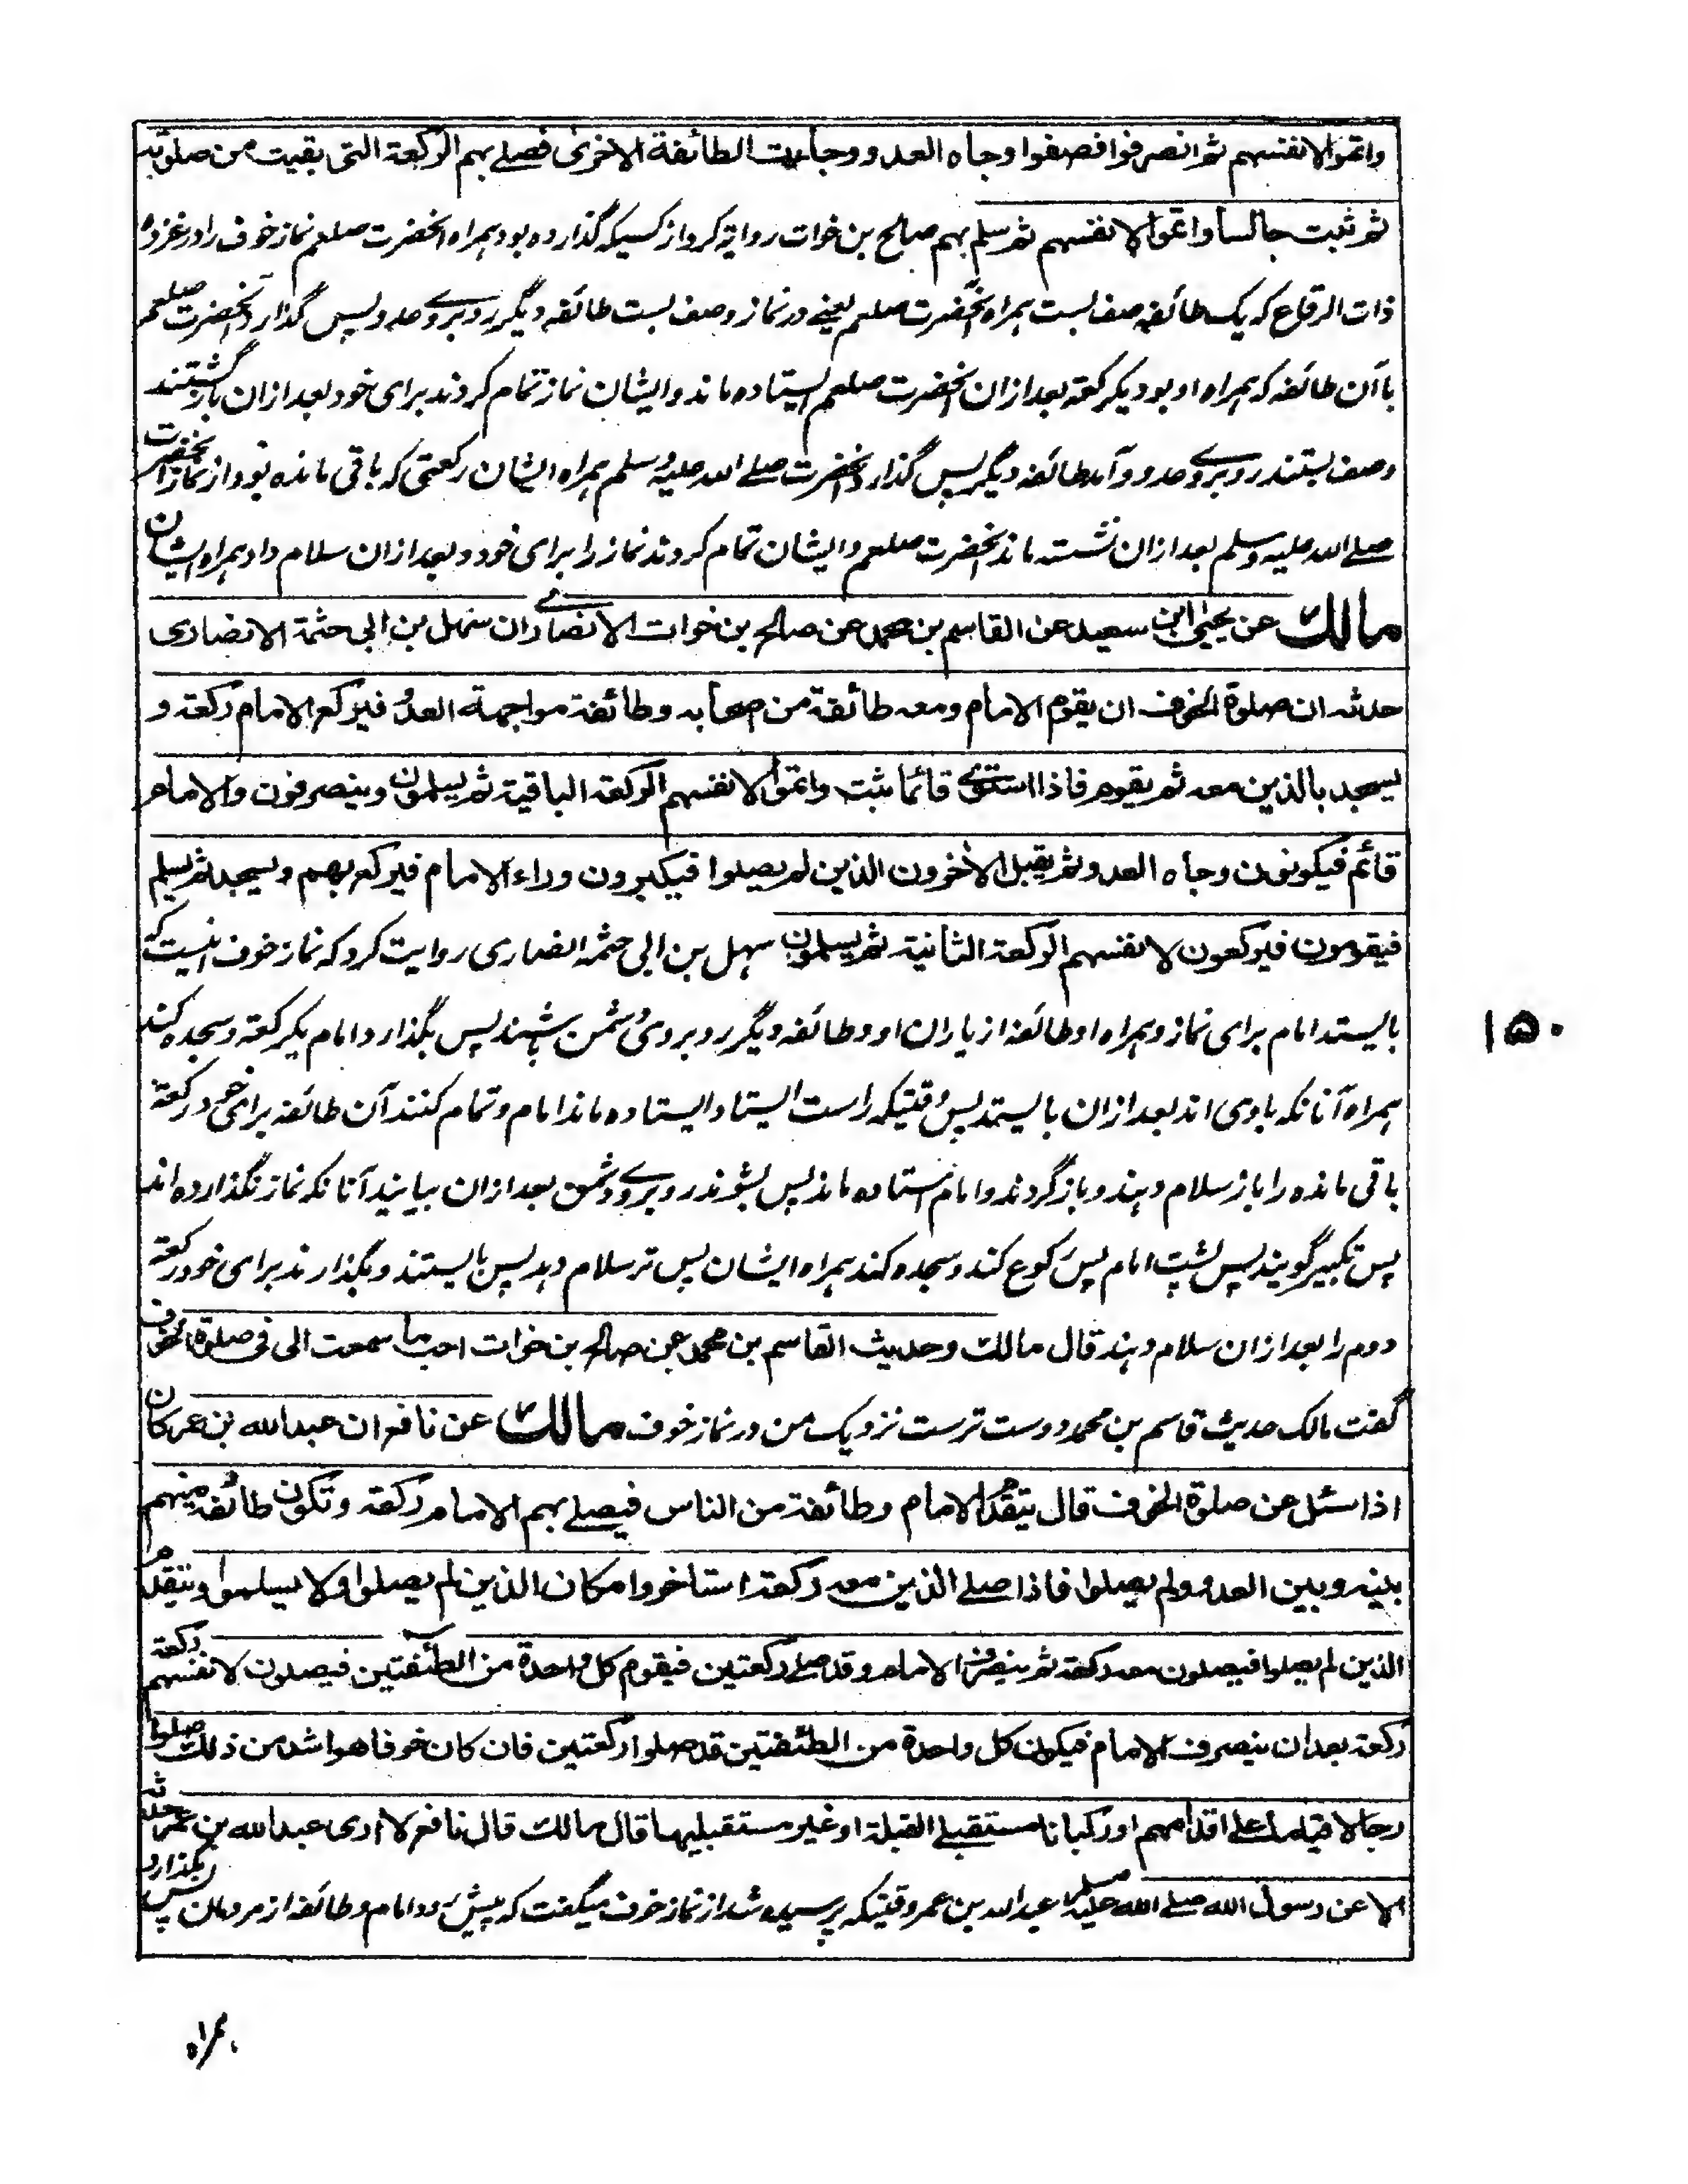 واتموا لانفسهم ثم انصرفوا فصفوا وجاه العدو وجاءت الطائفة الاخرى فصلے بهم الركعة التى بقيت من صلوته
ثم ثبت جالسا واتموا لانفسهم ثم سلم بهم صالح بن خوات روایة کرد از کسیکه گذارده بود همراه آنحضرت صلعم نماز خوف را در غزوهٔ
ذات الرقاع که یک طائفه صف بست همراه آنحضرت صلعم یعنے در نماز و صف بست طائفه دیگر روبروے عدو پس گذارد آنحضرت صلعم
با آن طائفه که همراه او بود یکرکعة بعد ازان آنحضرت صلعم ایستاده ماند و ایشان نماز تمام کردند برای خود بعد ازان بازگشتند
وصف بستند روبروے عدو و آمد طائفه دیگر پس گذارد آنحضرت صلے الله علیه وسلم همراه ایشان رکعتی که باقی مانده بود از نماز آنحضرت
صلے الله علیه وسلم بعد ازان نشسته ماند آنحضرت صلعم و ایشان تمام کردند نماز را برای خود و بعد ازان سلام داد همراه ایشان
مالك عن يحيى ابن سعيد عن القاسم بن محمد عن صالح بن خوات الانصارے ان سهل بن ابى حثمة الانصارى
حدثه ان صلوة الخوف ان يقوم الامام ومعه طائفة من اصحابه وطائفة مواجهة العدو فيركع الامام ركعة و
يسجد بالذين معه ثم يقوم فاذا استوے قائما ثبت واتموا لانفسهم الركعة الباقية ثم يسلمون وينصرفون والامام
قائم فيكونون وجاه العدو ثم يقبل الاخرون الذين لم يصلوا فيكبرون وراء الامام فيركع بهم ويسجد ثم يسلم
فيقومون فيركعون لانفسهم الركعة الثانية ثم يسلمون سهل بن ابی حثمه انصاری روایت کرد که نماز خوف اینست که
بایستد امام برای نماز و همراه او طائفه از یاران او و طائفه دیگر روبروی دشمن باشند پس بگذارد امام یکرکعة و سجده کند
همراه آنانکه باوی اند بعد ازان بایستد پس وقتیکه راست ایستاد ایستاده ماند امام و تمام کنند آن طائفه برای خود رکعة
باقی مانده را باز سلام دهند و باز گردند و امام استاده ماند پس بشوند روبروے دشمن بعد ازان بیایند آنانکه نماز نگذارده اند
پس تکبیر گویند پس پشت امام پس رکوع کند و سجده کند همراه ایشان پس تر سلام دهد پس بایستند و بگذارند برای خود رکعة
دوم را بعد ازان سلام دهند قال مالك وحديث القاسم بن محمد عن صالح بن خوات احب ما سمعت الى فى صلوة الخوف
گفت مالک حدیث قاسم بن محمد دوست ترست نزدیک من در نماز خوف مالك عن نافع ان عبد الله بن عمر كان
اذا سئل عن صلوة الخوف قال يتقدم الامام وطائفة من الناس فيصلے بهم الامام ركعة وتكون طائفة منهم
بينه وبين العدو ولم يصلوا فاذا صلے الذين معه ركعة استاخروا مكان الذين لم يصلوا ولا يسلموا ويتقدم
الذين لم يصلوا فيصلون معه ركعة ثم ينصرف الامام وقد صلے ركعتين فيقوم كل واحدة من الطائفتين فيصلون لانفسهم ركعة
ركعة بعد ان ينصرف الامام فيكون كل واحدة من الطائفتين قد صلوا ركعتين فان كان خوفا هو اشد من ذلك صلوا
رجالا قياما على اقدامهم او ركبانا مستقبلے القبلة او غير مستقبليها قال مالك قال نافع لا ارى عبد الله بن عمر حدثه
الا عن رسول الله صلے الله عليه وسلم عبدالله بن عمر وقتیکه پرسیده شد از نماز خوف میگفت که پیش رود امام و طائفه از مردمان پس بگذارد
۱۵۰
همراه